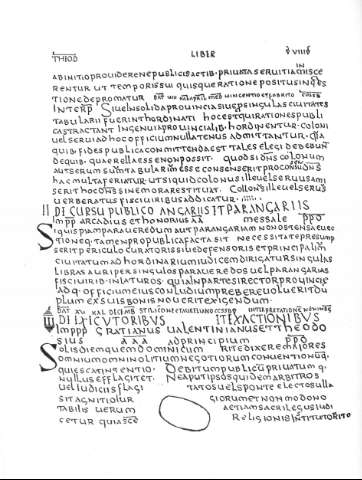 THEOD LIBER VIIII
IN
AB INITIO PROUIDERE NE PUBLICIS ACTIB· PRIUATA SERUITIA MISCE
RENTUR UT TEMPORIS SUI QUISQUE RATIONE POSITUS INGES
TIONE DEPROMATUR DAT
INTERP SIUE IN SOLIDA PROUINCIA SIUE PER SINGULAS CIUITATES
TABULARII FUERINT HORDINATI HOC EST QUI RATIONES PUBLI
CAS TRACTANT INGENUI A PROUINCIALIB· HORDINENTUR· COLONI
UEL SERUI AD HOC OFFICIUM NULLATENUS ADMITTANTUR·
QUIB· FIDES PUBLICA COMMITTENDA EST TALES ELEGI DEBEUNT
DE QUIB· QUAERELLA ESSE NON POSSIT· QUOD SI DNS COLONUM
AUT SERUUM SUM TABULARIUM ESSE CONSENSERIT PRO
HAC MULTA FERIATUR UT SI QUID COLONUS ILLE UEL SERUUS AMI
SERIT HOC DNS IN EMORARE STITUAT· COLLONUS ILLE UEL SERUS
UERBERATUS FISCI UIRIBUS ADDICATUR
II DE CURSU PUBLICO ANGARIIS ET PARANGARIIS
IMPP ARCADIUS ET HONORIUS AA MESSALE PPO
SIQUIS PARAUEREDUM AUT PARANGARIAM NON OSTENSA EUEC
TIONEQ· TAMEN PRO PUBLICA FACTA SIT NECESSITATE PRESUMP
SERIT PERICULO CURATORIS SIUE DEFENSORIS ET PRINCIPALIUM
CIUITATUM AD HORDINARIUM IUDICEM DIRIGATUR SINGULAS
LIBRAS AURI PER SINGULOS PARAUEREDOS UEL PARANGARIAS
FISCI UIRIB· INLATUROS· QUIA IN PARTES RECTOR PROUINCIE
ADQ· OFFICIUM EIUS CONLUDIUM PREBERE UOLUERIT DU
PLUM EX SUIS BONIS NOUERIT EXIGENDUM·
DAT XV KAL DECEMB STILICONE ET AURELIANO INTERPRETATIONE
III DE EXECUTORIBUS ET EXACTIONIBUS
IMPPP GRATIANUS UALENTINIANUS ET THEODO
SIUS AAA AD PRINCIPIUM PPO
SOLIS DIEM QUEM DOMINICUM RITE DIXERE MAIORES
OMNIUM OMNINO LITIUM NEGOTIORUM CONUENTIONUQ·
QUIESCAT INTENTIO· DEBITUM PUBLICUM PRIUATUMQ·
NULLUS EFFLAGITET· NE APUT IPSOS QUIDEM ARBITROS
UEL IUDICIIS FLAGI TATOS UEL SPONTE ELECTOS ULLA
SIT AGNITIO IUR GIORUM ET NON MODO NO
TABILIS UERUM AETIAM SACRILEGUS IUDI
CETUR QUI A SCE RELIGIONIS INSTITUTO RITO